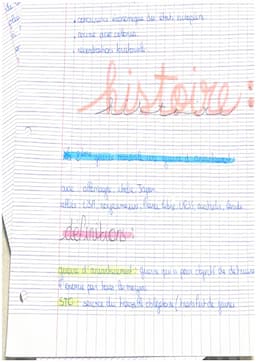 . concurrence économique des états européens
. course aux colonies
. revendication territoriale
histoire :
la 2ème guerre mondiale une guerre d'anéantissement
axe : allemagne, italie, Japon
alliés : USA, royaume-uni, france libre, URSS, australie, canada
définitions :
guerre d'anéantissement : guerre qui a pour objectif de détruire
l'ennemi par tous les moyens
STO : service du travail obligatoire /